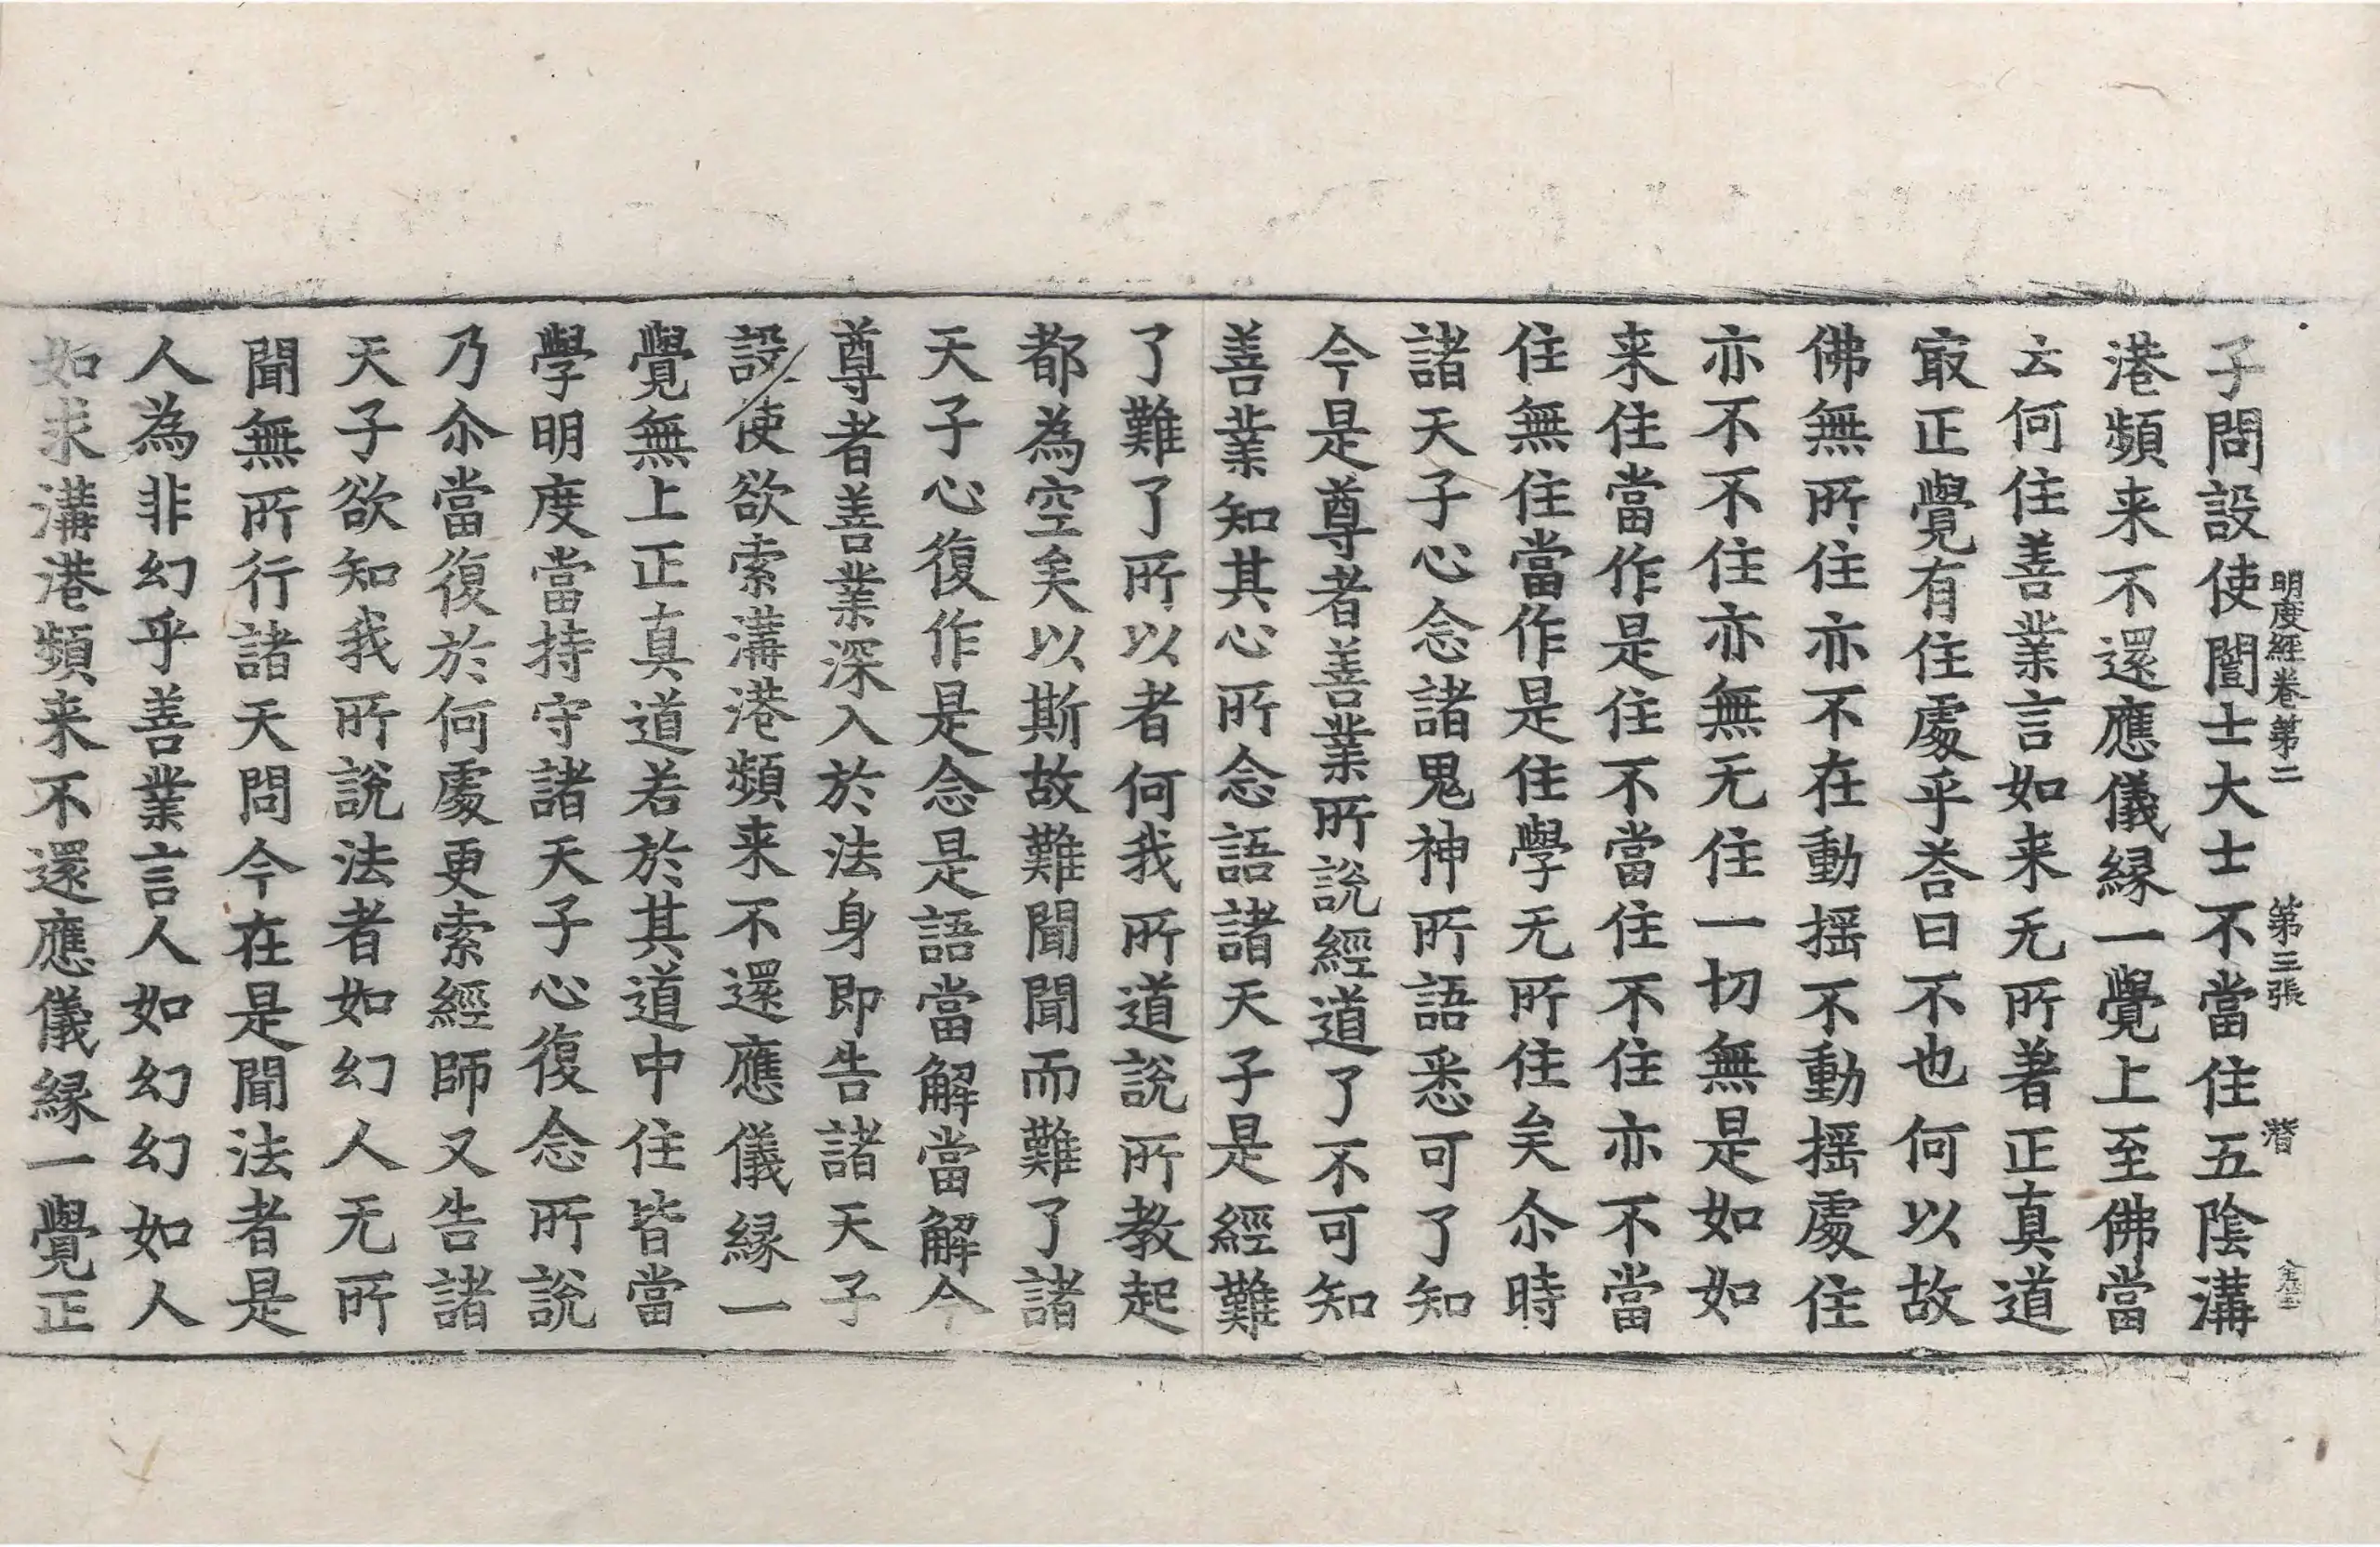 明度經卷第二　第三張　潛
子問設使闓士大士不當住五陰溝
港頻来不還應儀縁一覺上至佛當
云何住善業言如来无所著正真道
㝡正覺有住處乎荅曰不也何以故
佛無所住亦不在動揺不動揺處住
亦不不住亦無无住一切無是如如
来住當作是住不當住不住亦不當
住無住當作是住學无所住矣尒時
諸天子心念諸鬼神所語悉可了知
今是尊者善業所說經道了不可知
善業知其心所念語諸天子是經難
了難了所以者何我所道說所教起
都為空矣以斯故難聞聞而難了諸
天子心復作是念是語當解當解今
尊者善業深入於法身即告諸天子
設使欲索溝港頻来不還應儀縁一
覺無上正真道若於其道中住皆當
學明度當持守諸天子心復念所說
乃尒當復於何處更索經師又告諸
天子欲知我所說法者如幻人无所
聞無所行諸天問今在是聞法者是
人為非幻乎善業言人如幻幻如人
如求溝港頻来不還應儀縁一覺正